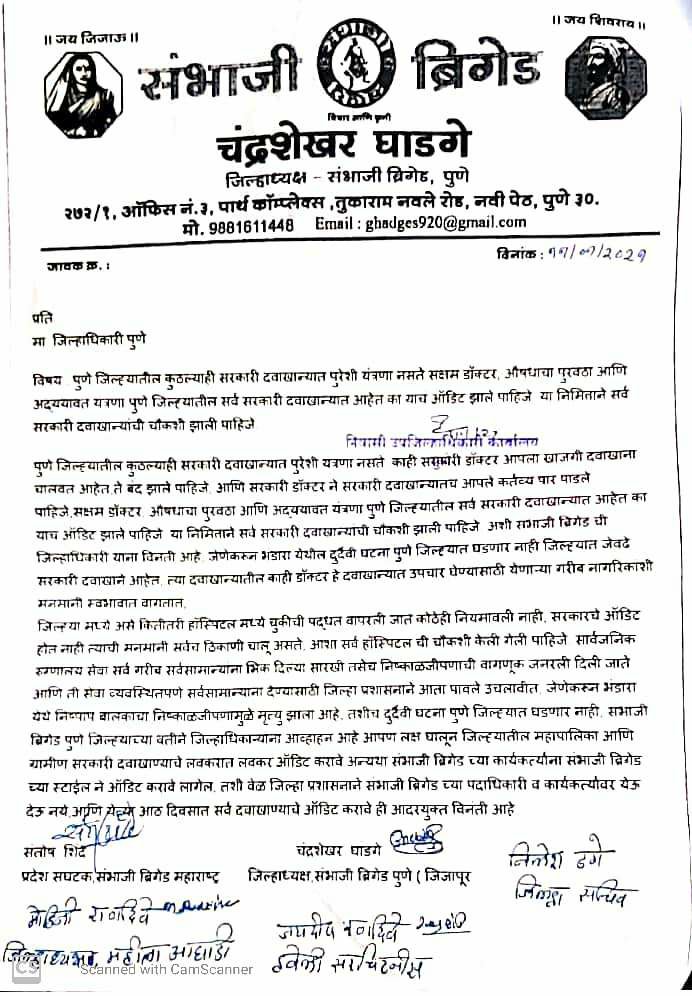 ॥ जय जिजाऊ ॥
॥ जय शिवराय ॥
संभाजी ब्रिगेड
विचार आणि कृती
चंद्रशेखर घाडगे
जिल्हाध्यक्ष - संभाजी ब्रिगेड, पुणे
२७२/१, ऑफिस नं.३, पार्थ कॉम्प्लेक्स ,तुकाराम नवले रोड, नवी पेठ, पुणे ३०.
मो. 9881611448 Email : ghadges920@gmail.com
जावक क्र. :
विनांक : ११/०१/2०2१
प्रति
मा जिल्हाधिकारी पुणे
विषय पुणे जिल्ह्यातील कुठल्याही सरकारी दवाखान्यात पुरेशी यंत्रणा नसते सक्षम डॉक्टर, औषधाचा पुरवठा आणि
अद्ययावत यत्रणा पुणे जिल्ह्यातील सर्व सरकारी दवाखान्यात आहेत का याच ऑडिट झाले पाहिजे या निमिताने सर्व
सरकारी दवाखान्यांची चौकशी झाली पाहिजे
निवासी उपजिल्हाधिकारी कार्यालय
पुणे जिल्ह्यातील कुठल्याही सरकारी दवाखान्यात पुरेशी यत्रणा नसते काही सरकारी डॉक्टर आपला खाजगी दवाखाना
चालवत आहेत.ते बंद झाले पाहिजे. आणि सरकारी डॉक्टर ने सरकारी दवाखान्यातच आपले कर्तव्य पार पाडले
पाहिजे.सक्षम डॉक्टर औषधाचा पुरवठा आणि अद्ययावत यंत्रणा पुणे जिल्ह्यातील सर्व सरकारी दवाखान्यात आहेत का
याच ऑडिट झाले पाहिजे या निमिताने सर्व सरकारी दवाखान्यांची चौकशी झाली पाहिजे अशी सभाजी ब्रिगेड ची
जिल्हाधिकारी याना विनती आहे. जेणेकरुन भडारा येथील दुर्दैवी घटना पुणे जिल्ह्यात घडणार नाही जिल्ह्यात जेवढे
सरकारी दवाखाने आहेत, त्या दवाखान्यातील काही डॉक्टर हे दवाखान्यात उपचार घेण्यासाठी येणाऱ्या गरीब नागरिकाशी
मनमानी स्वभावात वागतात.
जिल्ह्या मध्ये असे कितीतरी हॉस्पिटल मध्ये चुकीची पद्धत वापरली जात कोठेही नियमावली नाही. सरकारचे ऑडिट
होत नाही त्याची मनमानी सर्वच ठिकाणी चालू असते. आशा सर्व हॉस्पिटल ची चौकशी केली गेली पाहिजे सार्वजनिक
रुग्णालय सेवा सर्व गरीब सर्वसामान्याना भिक दिल्या सारखी तसेच निष्काळजीपणाची वागणूक जनरली दिली जाते
आणि ती सेवा व्यवस्थितपणे सर्वसामान्याना देण्यासाठी जिल्हा प्रशासनाने आता पावले उचलावीत. जेणेकरुन भंडारा
येथे निष्पाप बालकाचा निष्काळजीपणामुळे मृत्यु झाला आहे. तशीच दुर्दैवी घटना पुणे जिल्ह्यात घडणार नाही. सभाजी
ब्रिगेड पुणे जिल्ह्याच्या वतीने जिल्हाधिकाऱ्याना आव्हाहन आहे आपण लक्ष घालून जिल्ह्यातील महापालिका आणि
ग्रामीण सरकारी दवाखाण्याचे लवकरात लवकर ऑडिट करावे अन्यथा संभाजी ब्रिगेड च्या कार्यकर्त्याना संभाजी ब्रिगेड
च्या स्टाईल ने ऑडिट करावे लागेल. तशी वेळ जिल्हा प्रशासनाने संभाजी ब्रिगेड च्या पदाधिकारी व कार्यकर्त्यावर येऊ
देऊ नये.आणि येत्या आठ दिवसात सर्व दवाखाण्याचे ऑडिट करावे ही आदरयुक्त विनंती आहे
संतोष शिंदे
चंद्रशेखर घाडगे
निलेश ढगे
प्रदेश सघटक,संभाजी ब्रिगेड महाराष्ट्र
जिल्हाध्यक्ष,संभाजी ब्रिगेड पुणे ( जिजापूर
जिल्हा सचिव
मोहिनी रणदिवे
जिल्हाध्यक्ष, महीला आघाडी
जयदीप रणदिवे
हवेली सरचिटणीस
CS Scanned with CamScanner